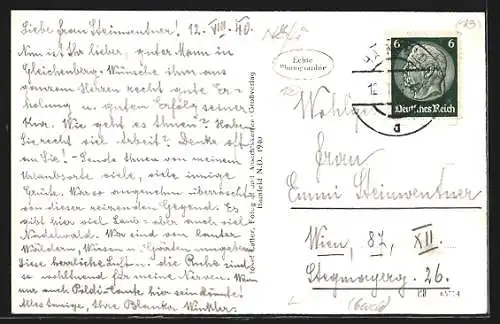 Liebe Frau Steinwentner! 12. VIII. 40.
Nun ist Ihr lieber, guter Mann in
Gleichenberg. Wünsche ihm aus
ganzem Herzen recht gute Er-
holung u. guten Erfolg seiner
Kur. Wie geht es Ihnen? Haben
Sie recht viel Arbeit? Denke oft
an Sie! - Sende Ihnen von meinem
Urlaubsorte viele, viele innige
Grüße. War so angenehm überrascht
von dieser reizenden Gegend. Es
gibt hier viel Laub- aber auch viel
Nadelwald. Wir sind von lauter
Wäldern, Wiesen u. Gärten umgeben.
Diese herrliche Luft die Ruhe sind
so wohltuend für meine Nerven. Wenn
nur auch Poldi-Tante hier sein könnte!
Alles Innige, Ihre Blanka Winkler.
Josef Kattner, Fotograf und Ansichtskarten-Großverlag
Hainfeld N.D. 1940
Echte
Photographie
6 6
Deutsches Reich
12.
a
Frau
Emmi Steinwentner
Wien, 82, XII.
Stegmayerg. 26.